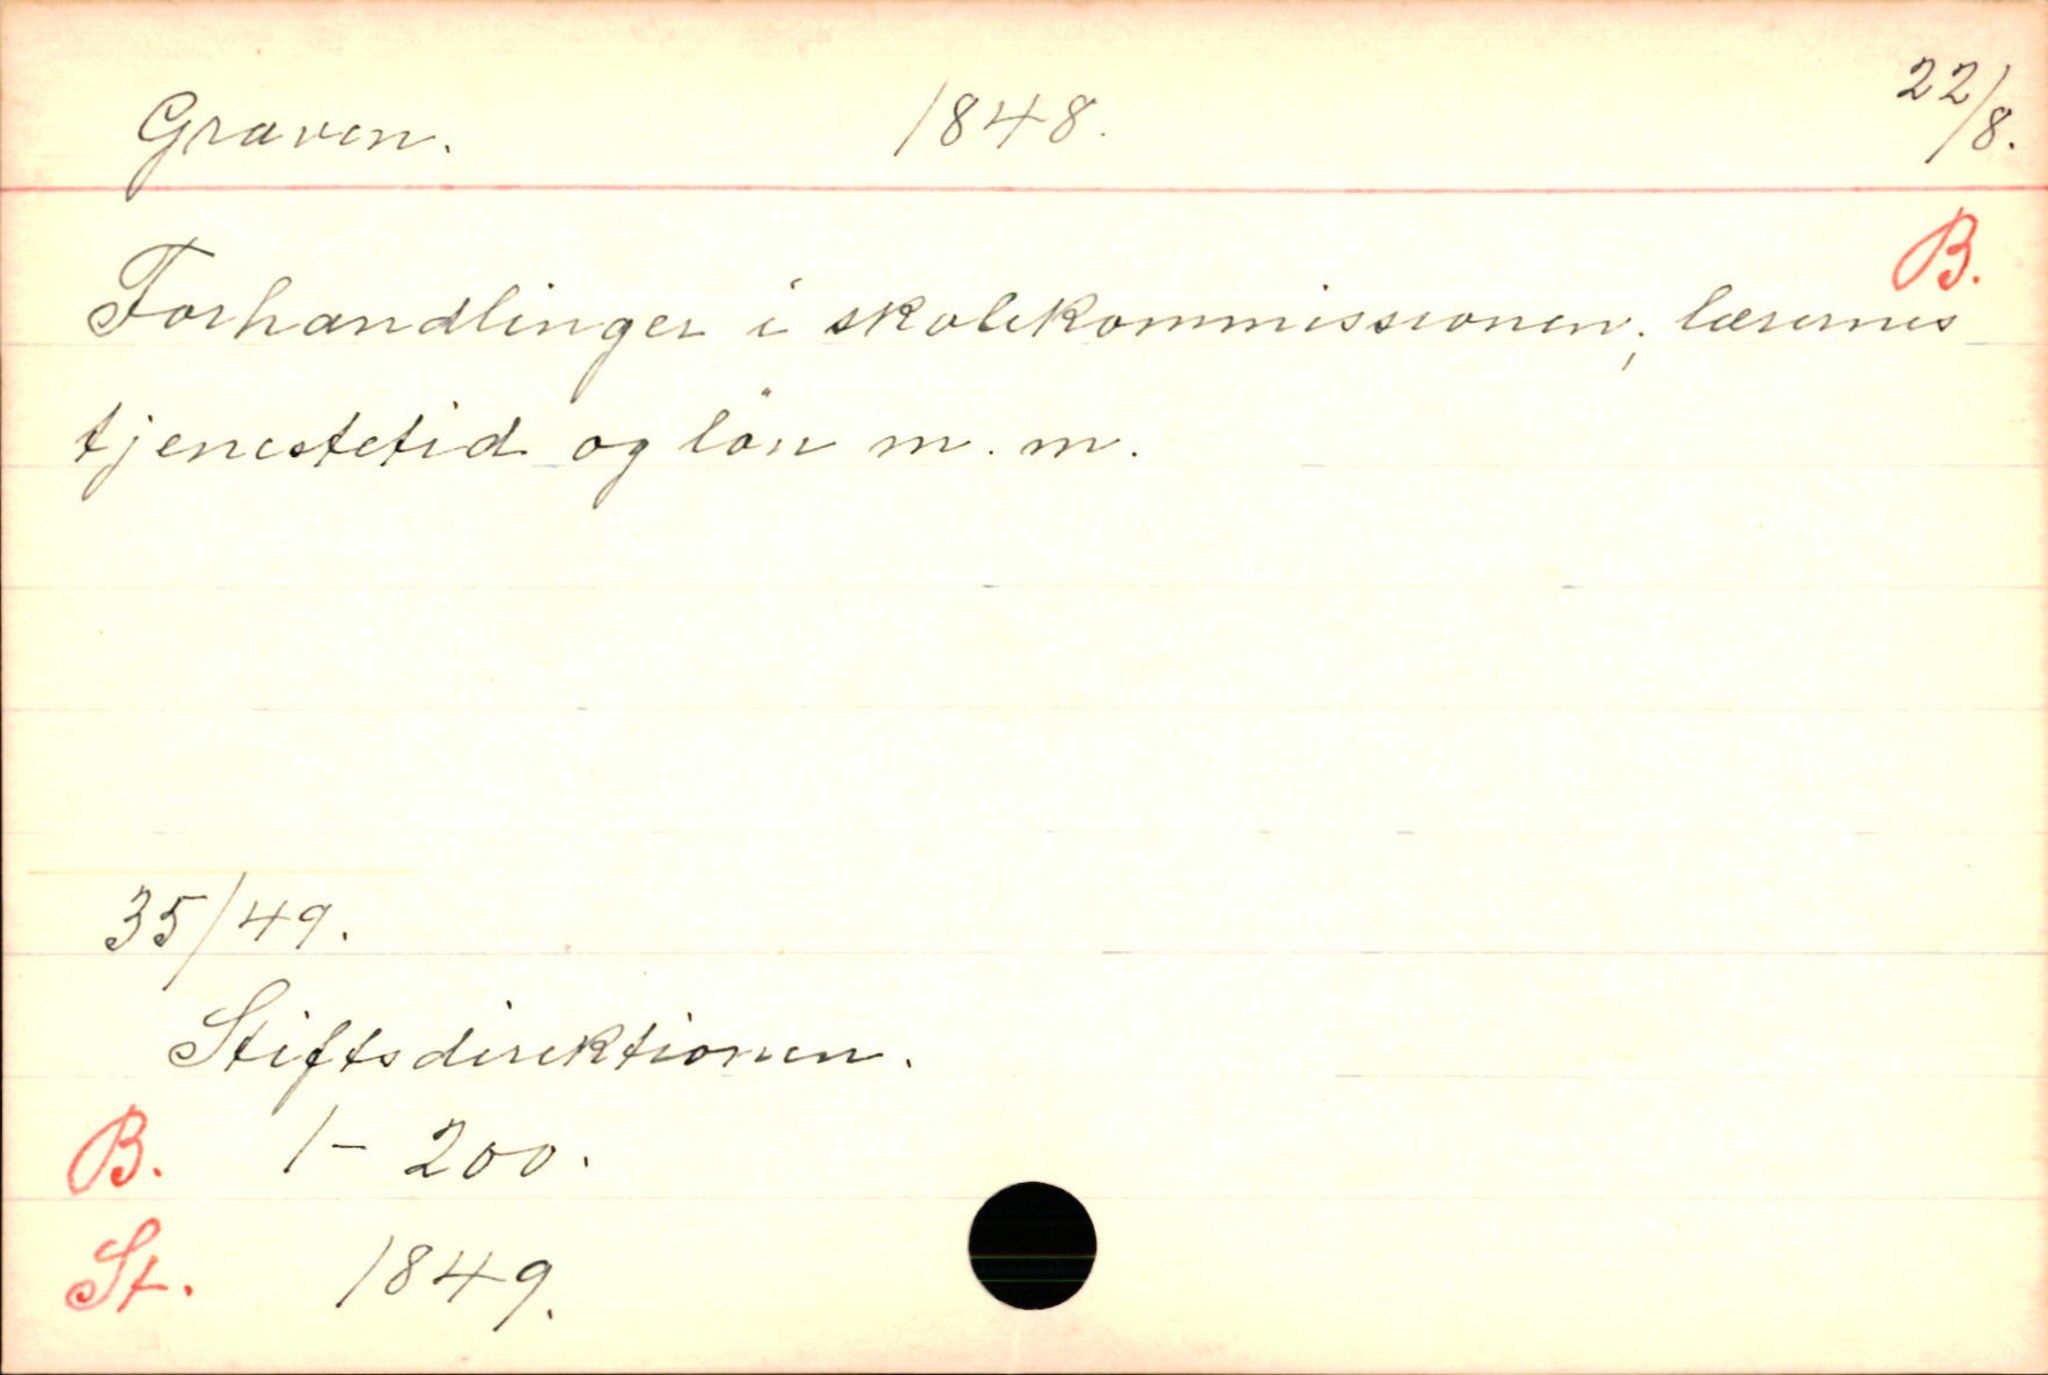 Graven. 1848. 22/8.
B.
Forhandlinger i skolekommissionen; lærernes
tjenestetid og lön m. m.
35/49.
Stiftsdirektionen.
B. 1-200.
St. 1849.